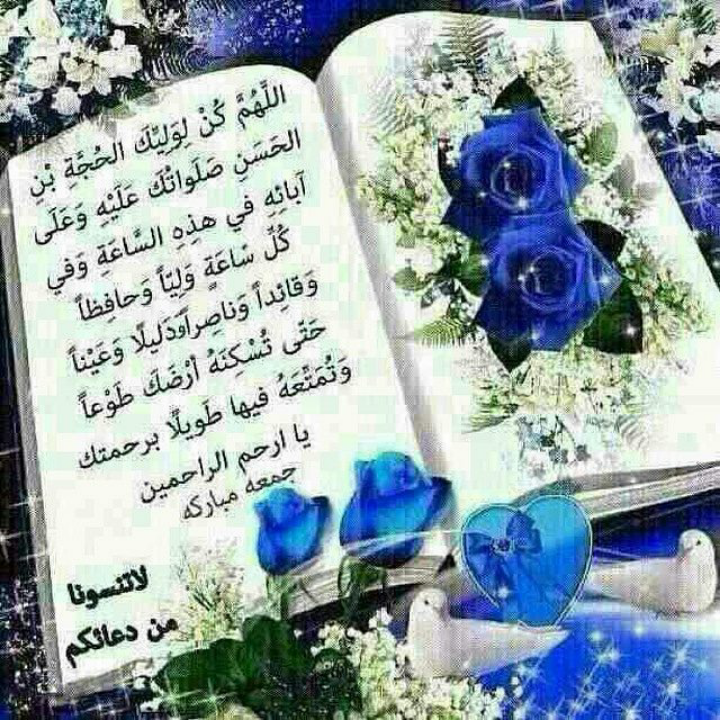 اللَّهُمَّ كُنْ لِوَلِيِّكَ الحُجَّةِ بْنِ
الحَسَنِ صَلَواتُكَ عَلَيْهِ وَعَلَى
آبائِهِ في هذِهِ السَّاعَةِ وَفي
كُلِّ سَاعَةٍ وَلِيّاً وَحافِظاً
وَقائِداً وَناصِراًوَدَليلًا وَعَيْناً
حَتَّى تُسْكِنَهُ أرْضَكَ طَوْعاً
وَتُمَتِّعَهُ فيها طَويلًا برحمتك
يا ارحم الراحمين
جمعه مباركه
لاتنسونا
من دعائكم